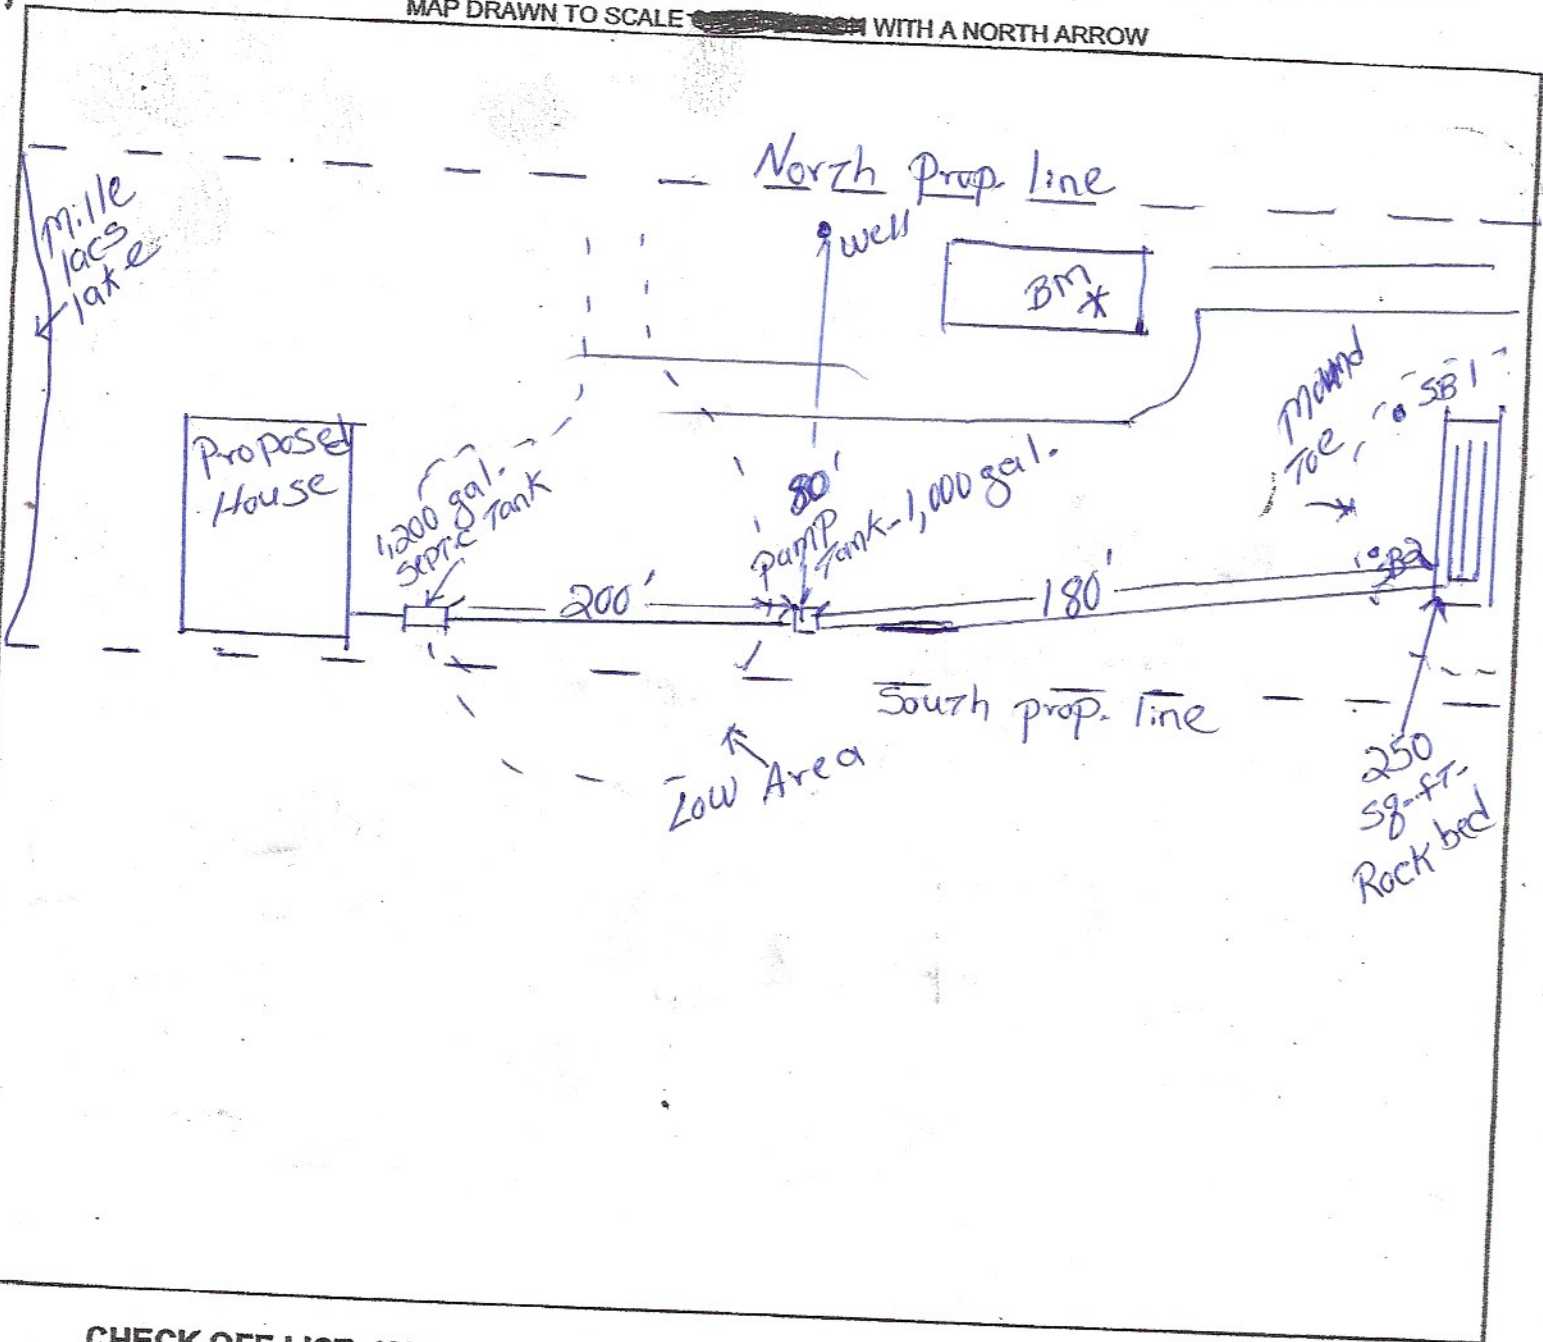 MAP DRAWN TO SCALE WITH A NORTH ARROW
North Prop. line
Mille
lacs
lake
well
BM
Proposed
House
1,200 gal.
Septic Tank
200'
80'
Pump
Tank-1,000 gal.
180'
Mound
Toe
SB 1
SB2
South prop. line
Low Area
250
sq.ft.
Rock bed